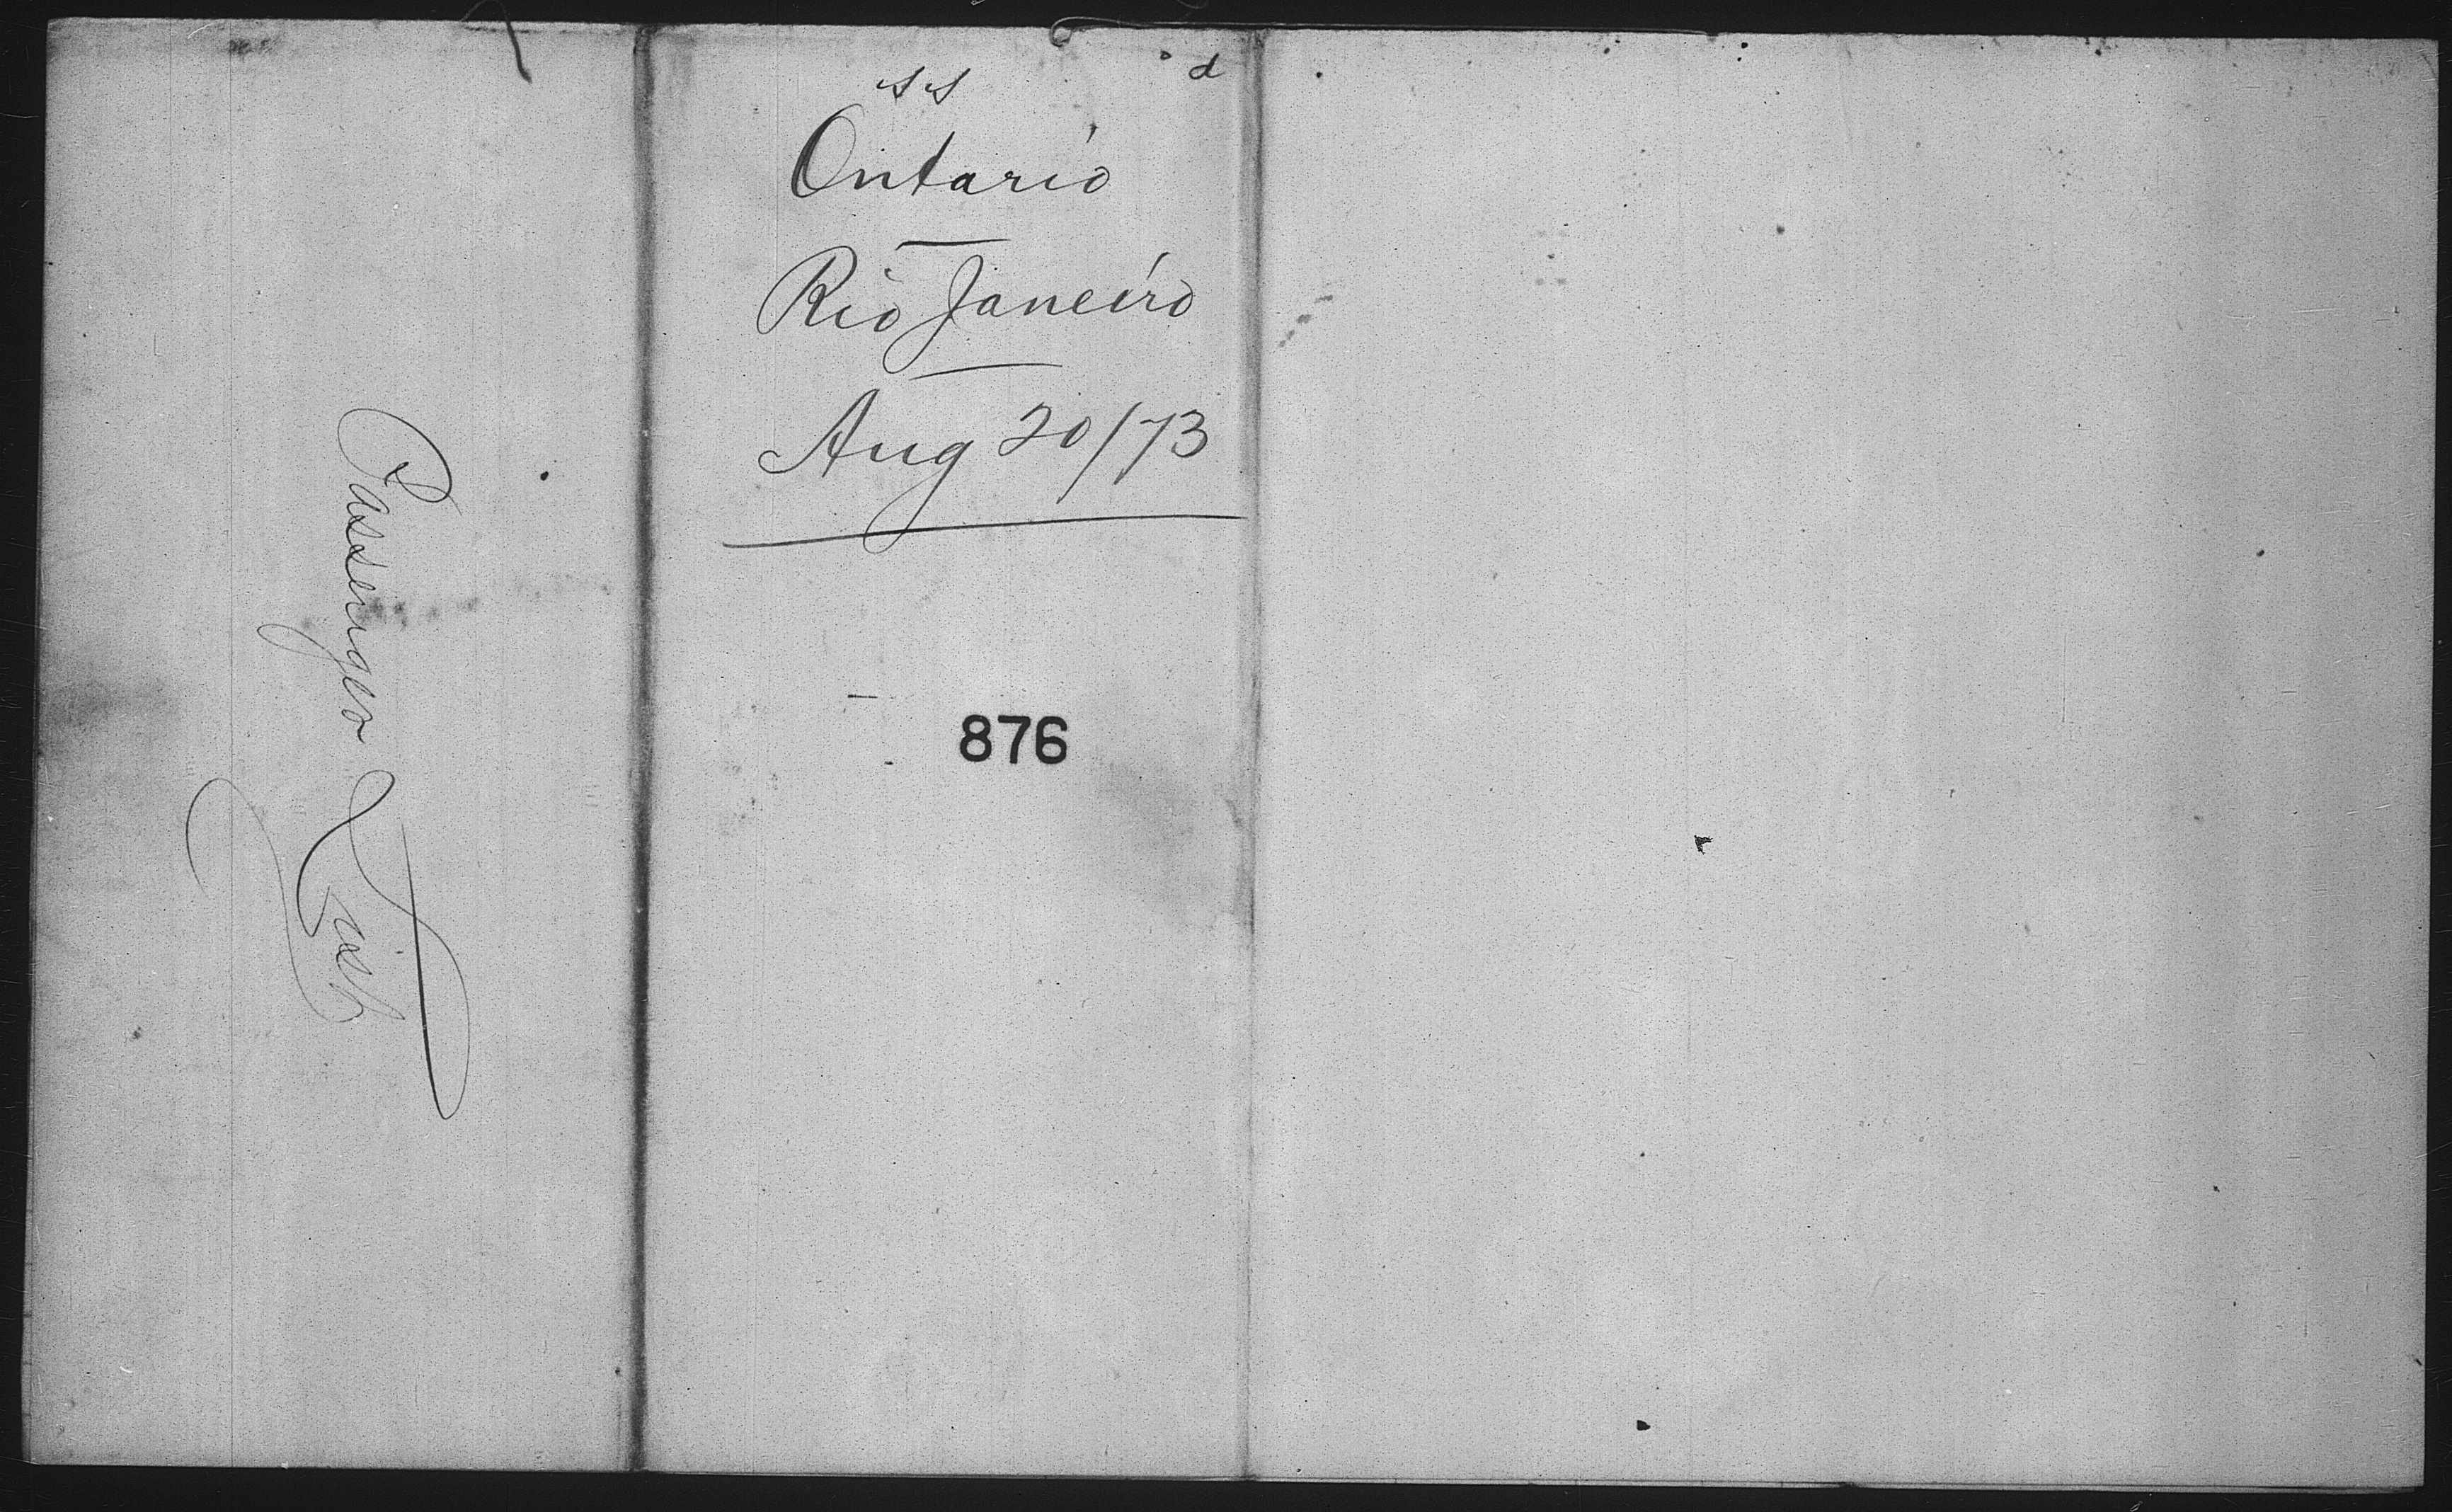 Passenger List
d
SS
Ontario
Rio Janeiro
Aug 20/73
876